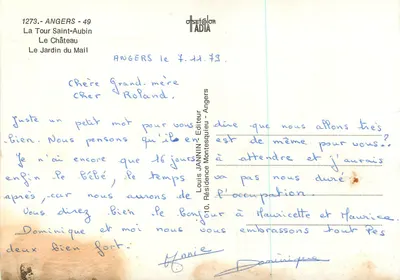 1273.- ANGERS - 49
La Tour Saint-Aubin
Le Château
Le Jardin du Mail
ADIA
ANGERS le 7.11.79.
Chère Grand. mère
Cher Roland.
Juste un petit mot pour vous dire que nous allons très
bien. Nous pensons qu'il en est de même pour vous.
Je n'ai encore que 16 jours à attendre et j'aurais
enfin le bébé, le temps va pas nous duré
après, car nous aurons de l'occupation.
Vous direz bien le bonjour à Mauricette et Maurice.
Dominique et moi nous vous embrassons tout les
deux bien fort.
Annie Dominique
Louis JANNIN - Editeur
10, Résidence Montesquieu - Angers